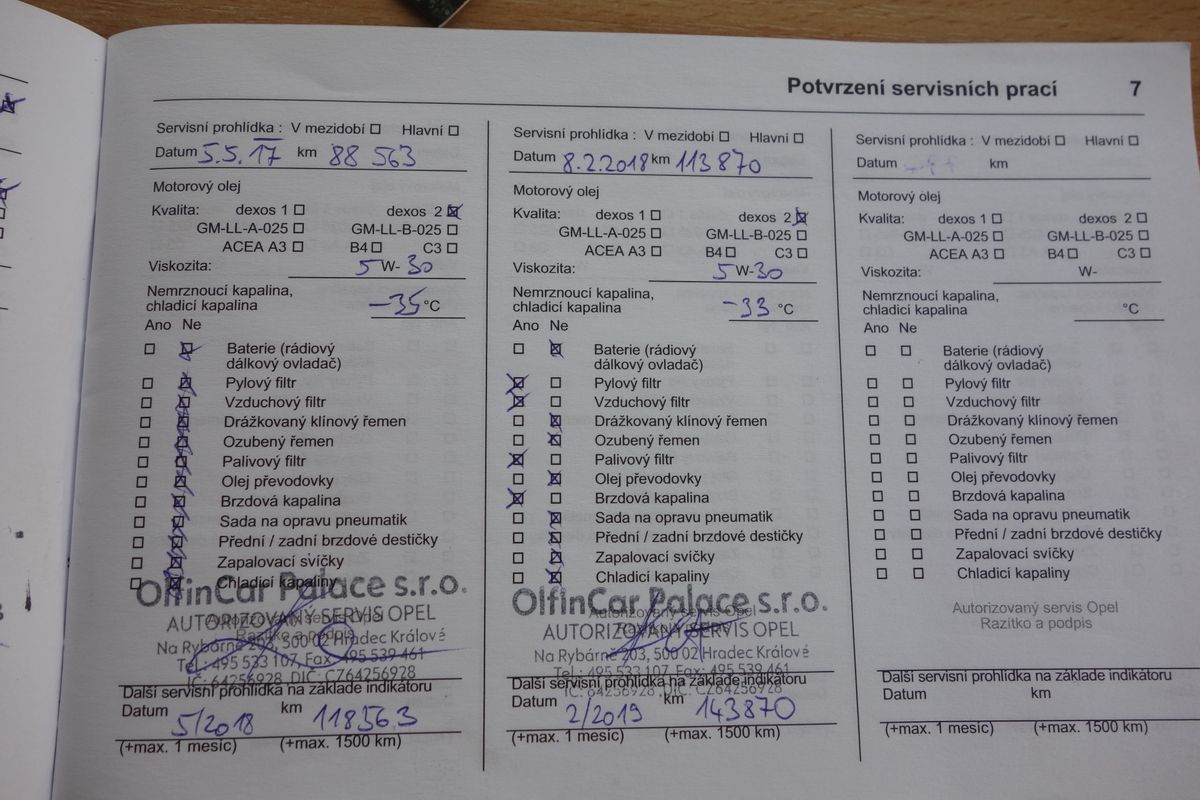 Potvrzení servisních prací 7
Servisní prohlídka : V mezidobí Hlavní
Datum 5.5.17 km 88 563
Motorový olej
Kvalita: dexos 1 dexos 2
GM-LL-A-025 GM-LL-B-025
ACEA A3 B4 C3
Viskozita: 5 W- 30
Nemrznoucí kapalina,
chladicí kapalina -35 °C
Ano Ne
Baterie (rádiový
dálkový ovladač)
Pylový filtr
Vzduchový filtr
Drážkovaný klínový řemen
Ozubený řemen
Palivový filtr
Olej převodovky
Brzdová kapalina
Sada na opravu pneumatik
Přední / zadní brzdové destičky
Zapalovací svíčky
Chladicí kapaliny
OlfinCar Palace s.r.o.
AUTORIZOVANÝ SERVIS OPEL
Autorizovaný servis Opel
Razítko a podpis
Na Rybárně 203, 500 02 Hradec Králové
Tel.: 495 533 107, Fax: 495 539 461
IČ: 64256928, DIČ: CZ64256928
Další servisní prohlídka na základe indikátoru
Datum 5/2018 km 118563
(+max. 1 mesíc) (+max. 1500 km)
Servisní prohlídka : V mezidobí Hlavní
Datum 8.2.2018 km 113870
Motorový olej
Kvalita: dexos 1 dexos 2
GM-LL-A-025 GM-LL-B-025
ACEA A3 B4 C3
Viskozita: 5 W-30
Nemrznoucí kapalina,
chladicí kapalina -33 °C
Ano Ne
Baterie (rádiový
dálkový ovladač)
Pylový filtr
Vzduchový filtr
Drážkovaný klínový řemen
Ozubený řemen
Palivový filtr
Olej převodovky
Brzdová kapalina
Sada na opravu pneumatik
Přední / zadní brzdové destičky
Zapalovací svíčky
Chladicí kapaliny
OlfinCar Palace s.r.o.
Autorizovaný servis Opel
AUTORIZOVANÝ SERVIS OPEL
Na Rybárně 203, 500 02 Hradec Králové
Tel.: 495 533 107, Fax: 495 539 461
IČ: 64256928, DIČ: CZ64256928
Další servisní prohlídka na základe indikátoru
Datum 2/2019 km 143870
(+max. 1 mesíc) (+max. 1500 km)
Servisní prohlídka : V mezidobí Hlavní
Datum km
Motorový olej
Kvalita: dexos 1 dexos 2
GM-LL-A-025 GM-LL-B-025
ACEA A3 B4 C3
Viskozita: W-
Nemrznoucí kapalina,
chladicí kapalina °C
Ano Ne
Baterie (rádiový
dálkový ovladač)
Pylový filtr
Vzduchový filtr
Drážkovaný klínový řemen
Ozubený řemen
Palivový filtr
Olej převodovky
Brzdová kapalina
Sada na opravu pneumatik
Přední / zadní brzdové destičky
Zapalovací svíčky
Chladicí kapaliny
Autorizovaný servis Opel
Razítko a podpis
Další servisní prohlídka na základe indikátoru
Datum km
(+max. 1 mesíc) (+max. 1500 km)